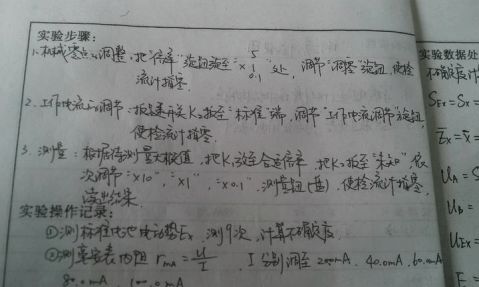 实验步骤:
1. 机械零点的调整:把"倍率"旋钮旋至"×5/0.1"处,调节"调零"旋钮,使检
流计指零.
2. 工作电流的调节:扳键开关K₂扳至"标准"端,调节"工作电流调节"旋钮,
使检流计指零.
3. 测量:根据待测量大概值,把K₁放至合适倍率,把K₂扳至"未知",依
次调节"×10"、"×1"、"×0.1"测量钮(盘),使检流计指零,
读出结果.
实验操作记录:
①测标准电池电动势Ex,测9次,计算不确定度
②测毫安表内阻 r_mA = U/I , I 分别调至 20.0mA, 40.0mA, 60.0mA
80.0mA, 100.0mA
实验数据处
不确定度计
S_Ex = S_x =
Ēx = x̄ =
U_A = S
U_B =
U_Ex =
E =